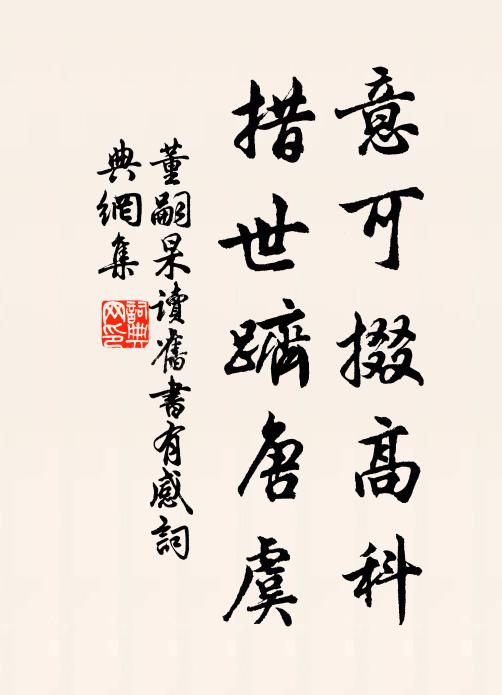 意可掇高科
措世躋唐虞
董嗣杲讀舊書有感詞
典網集
詞典網印